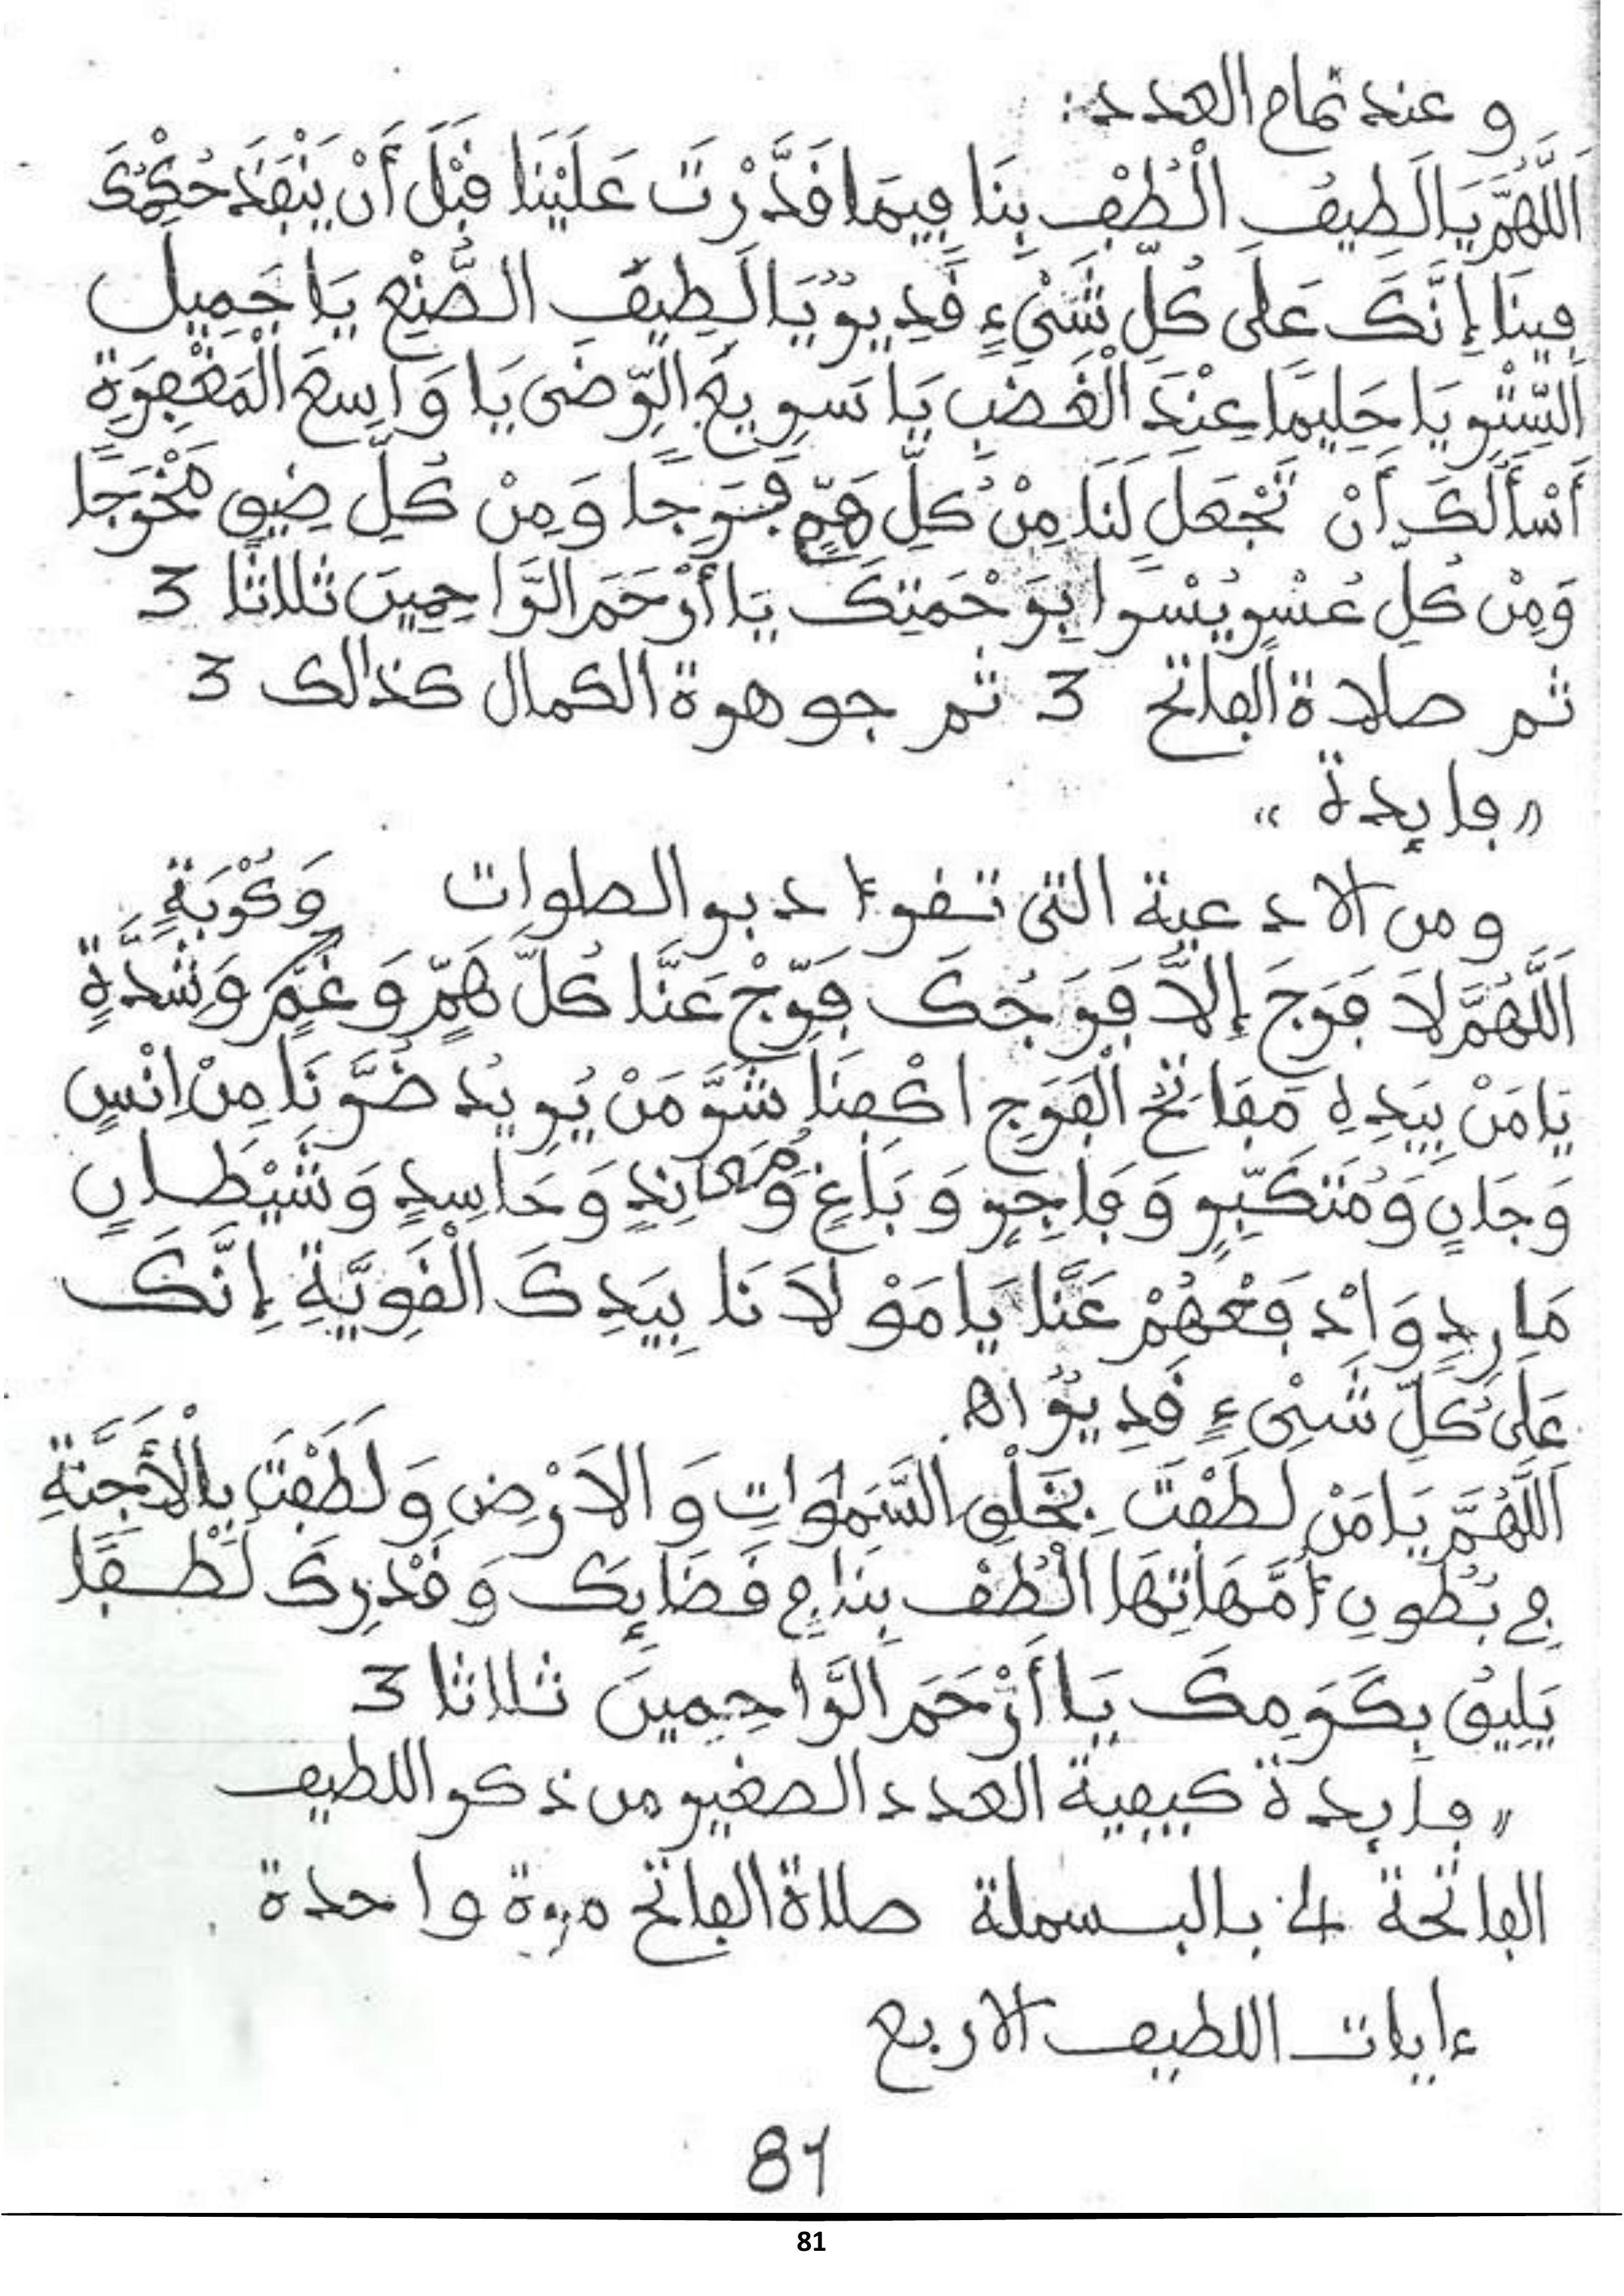 و عند تمام العدد:
اَللَّهُمَّ يَا لَطِيفُ الْطُفْ بِنَا فِيمَا قَدَّرْتَ عَلَيْنَا قَبْلَ أَنْ يَنْفَذَ حُكْمُكَ
فِينَا إِنَّكَ عَلَى كُلِّ شَيْءٍ قَدِيرٌ يَا لَطِيفَ الصُّنْعِ يَا جَمِيلَ
السِّتْرِ يَا حَلِيمًا عِنْدَ الْغَضَبِ يَا سَرِيعَ الرِّضَى يَا وَاسِعَ الْمَغْفِرَةِ
أَسْأَلُكَ أَنْ تَجْعَلَ لَنَا مِنْ كُلِّ هَمٍّ فَرَجًا وَمِنْ كُلِّ ضِيقٍ مَخْرَجًا
وَمِنْ كُلِّ عُسْرٍ يُسْرًا بِرَحْمَتِكَ يَا أَرْحَمَ الرَّاحِمِينَ ثلاثا 3
ثم صلاة الفاتح 3 ثم جوهرة الكمال كذالك 3
«فايدة»
ومن الادعية التى تقرءا دبر الصلوات وَكُرْبَةٍ
اَللَّهُمَّ لَا فَرَجَ إِلَّا فَرَجُكَ فَرِّجْ عَنَّا كُلَّ هَمٍّ وَغَمٍّ وَشِدَّةٍ
يَا مَنْ بِيَدِهِ مَفَاتِحُ الْفَرَجِ اكْفِنَا شَرَّ مَنْ يُرِيدُ ضُرَّنَا مِنْ اِنْسٍ
وَجَانٍ وَمُتَكَبِّرٍ وَفَاجِرٍ وَبَاغٍ وَمُعَانِدٍ وَحَاسِدٍ وَشَيْطَانٍ
مَارِدٍ وَادْفَعْهُمْ عَنَّا يَا مَوْلَانَا بِيَدِكَ الْقَوِيَّةِ إِنَّكَ
عَلَى كُلِّ شَيْءٍ قَدِيرٌ اه.
اَللَّهُمَّ يَا مَنْ لَطَفْتَ بِخَلْقِ السَّمَوَاتِ وَالَارْضِ وَلَطَفْتَ بِالْأَجِنَّةِ
فِي بُطُونِ أُمَّهَاتِهَا الْطُفْ بِنَا فِي قَضَايِكَ وَقَدَرِكَ لُطْفًا
يَلِيقُ بِكَرَمِكَ يَا أَرْحَمَ الرَّاحِمِينَ ثلاثا 3
«فايدة كيفية العدد الصغير من ذكر اللطيف
الفاتحة 4 بالبسملة صلاة الفاتح مرة واحدة
ءايات اللطيف الاربع
81
81